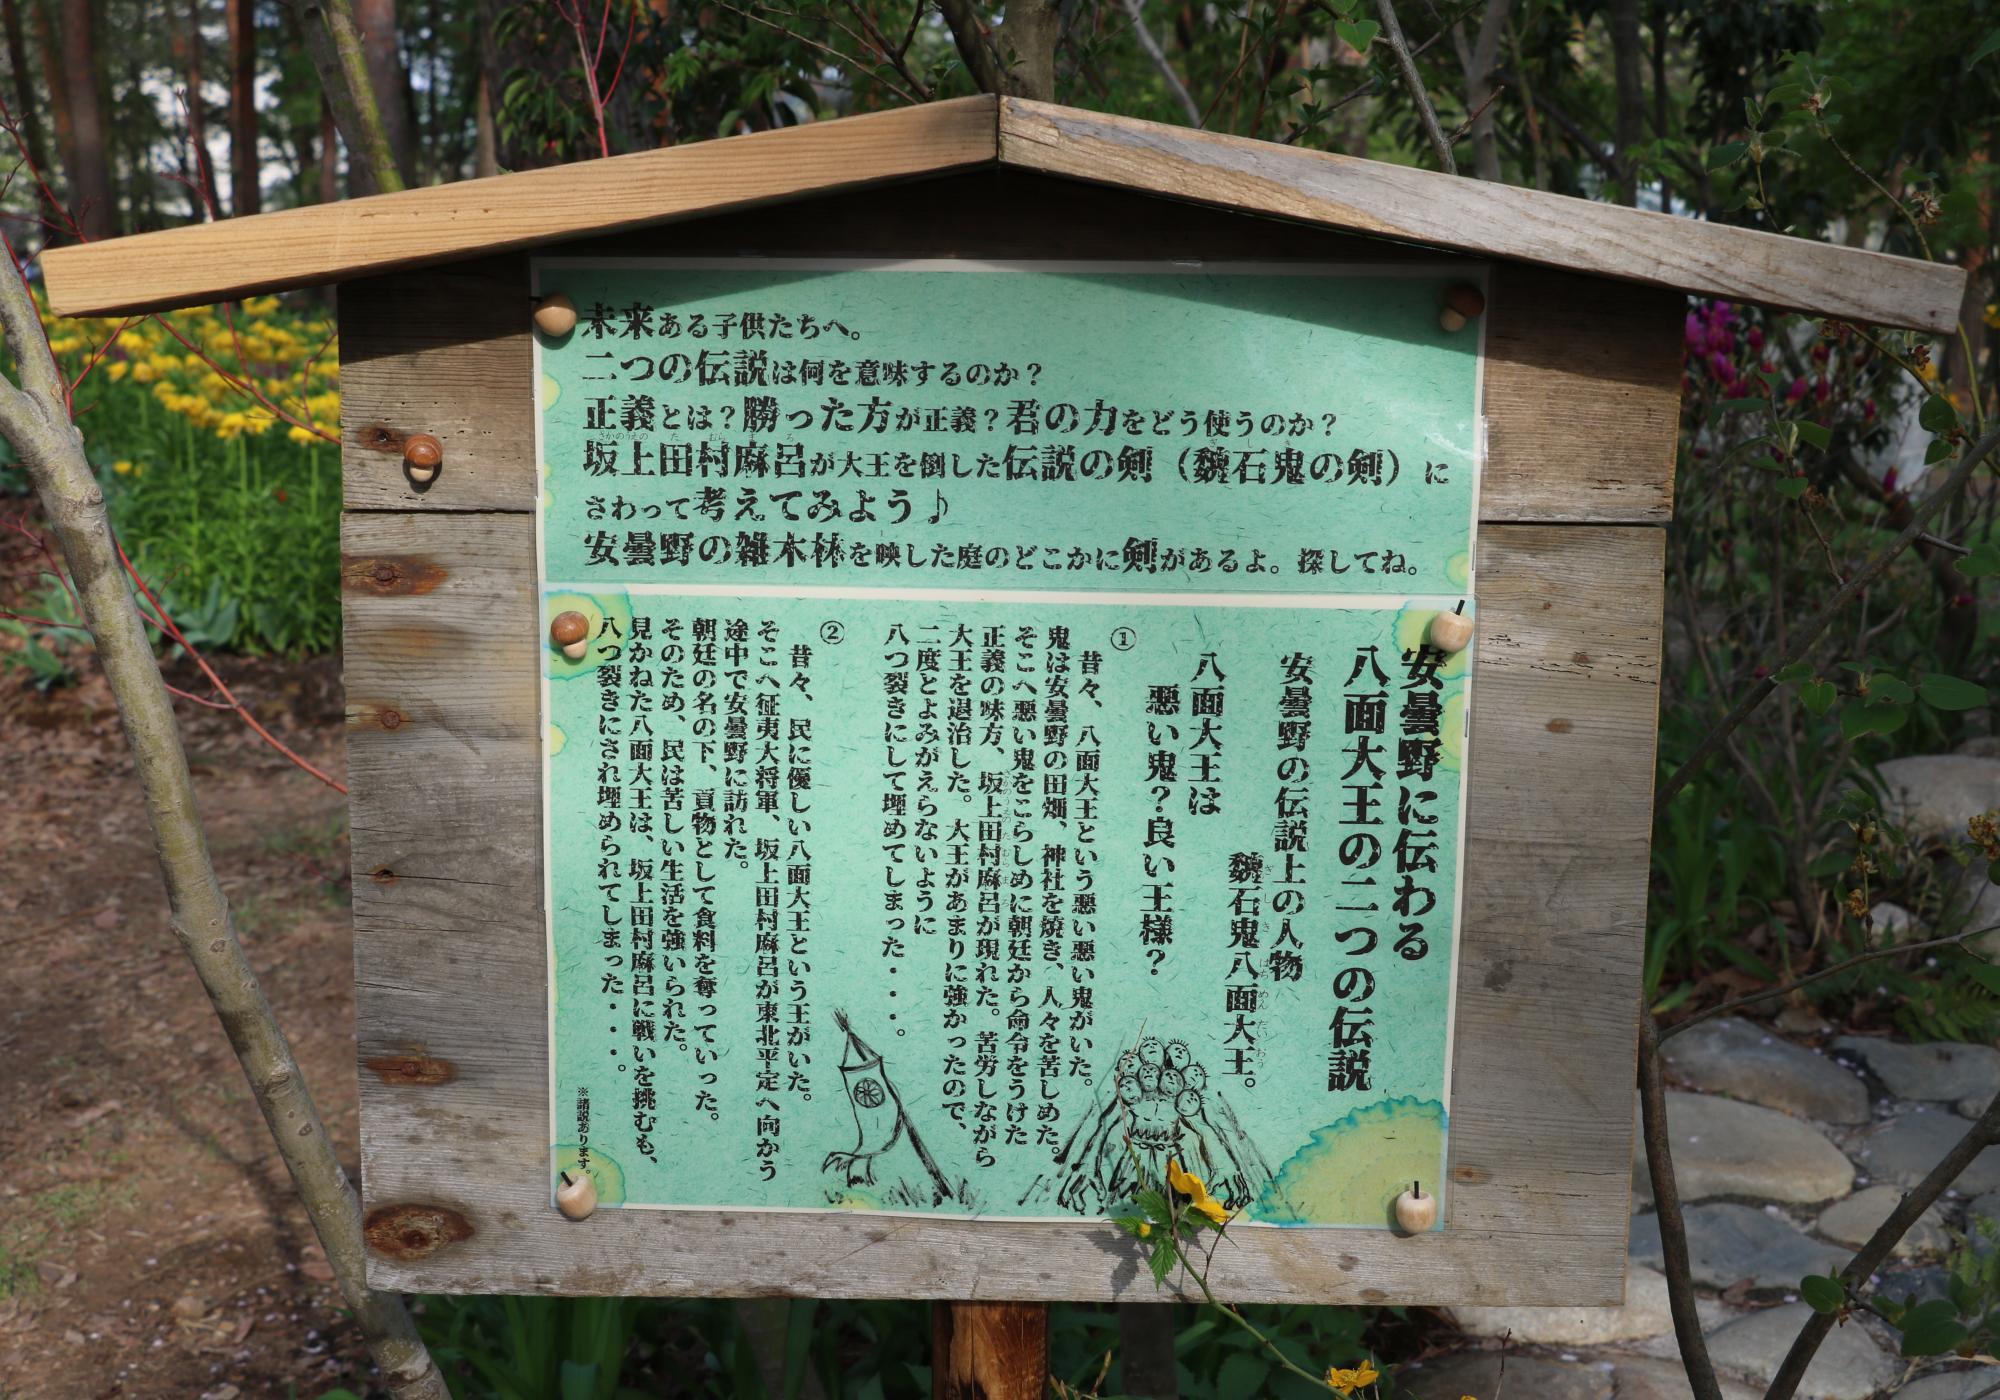 未来ある子供たちへ。
二つの伝説は何を意味するのか？
正義とは？勝った方が正義？君の力をどう使うのか？
坂上田村麻呂が大王を倒した伝説の剣（魏石鬼の剣）に
さわって考えてみよう♪
安曇野の雑木林を映した庭のどこかに剣があるよ。探してね。
安曇野に伝わる
八面大王の二つの伝説
安曇野の伝説上の人物
魏石鬼八面大王。
八面大王は
悪い鬼？良い王様？
①
昔々、八面大王という悪い悪い鬼がいた。
鬼は安曇野の田畑、神社を焼き、人々を苦しめた。
そこへ悪い鬼をこらしめに朝廷から命令をうけた
正義の味方、坂上田村麻呂が現れた。苦労しながら
大王を退治した。大王があまりに強かったので、
二度とよみがえらないように
八つ裂きにして埋めてしまった・・・。
②
昔々、民に優しい八面大王という王がいた。
そこへ征夷大将軍、坂上田村麻呂が東北平定へ向かう
途中で安曇野に訪れた。
朝廷の名の下、貢物として食料を奪っていった。
そのため、民は苦しい生活を強いられた。
見かねた八面大王は、坂上田村麻呂に戦いを挑むも、
八つ裂きにされ埋められてしまった・・・。
※諸説あります。